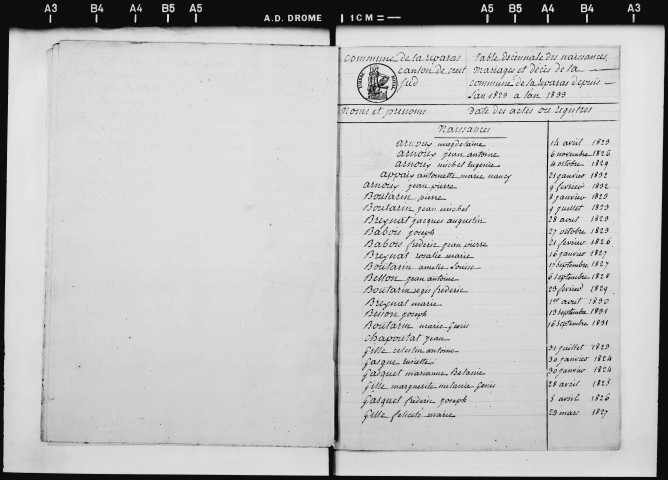 A3 B4 A4 B5 A5 A.D. DROME 1CM= A5 B5 A4 B4 A3
commune de la reparas
canton de crest
sud
Table décennale des naissances,
mariages et décès de la
commune de la reparas depuis
l'an 1823 a l'an 1833
Noms et prenoms Date des actes ou registres
Naissances
arnoux magdelaine 14 avril 1823
arnoux jean antoine 6 novembre 1826
arnoux michel eugenie 4 octobre 1829
appaix antoinette marie nancy 21 janvier 1832
arnoux jean pierre 9 fevrier 1832
Boutarin pierre 8 janvier 1823
Boutarin jean michel 9 juillet 1823
Breynat jacques augustin 28 avril 1823
Babois joseph 27 octobre 1823
Babois frederic jean pierre 21 fevrier 1826
Breynat rosalie marie 16 janvier 1827
Boutarin amelie Louise 17 septembre 1827
Besson jean antoine 6 septembre 1828
Boutarin regis frederic 23 fevrier 1829
Breynat marie 1er avril 1830
Besson joseph 13 septembre 1831
Boutarin marie Genis 16 septembre 1831
chapoutat jean
Gille celestin antoine 31 juillet 1823
Gasque 30 janvier 1824
Gasquet marianne Melanie 30 janvier 1824
Gille marguerite melanie Genis 28 avril 1825
Gasquet frederic joseph 5 avril 1826
Gille felicité marie 23 mars 1827